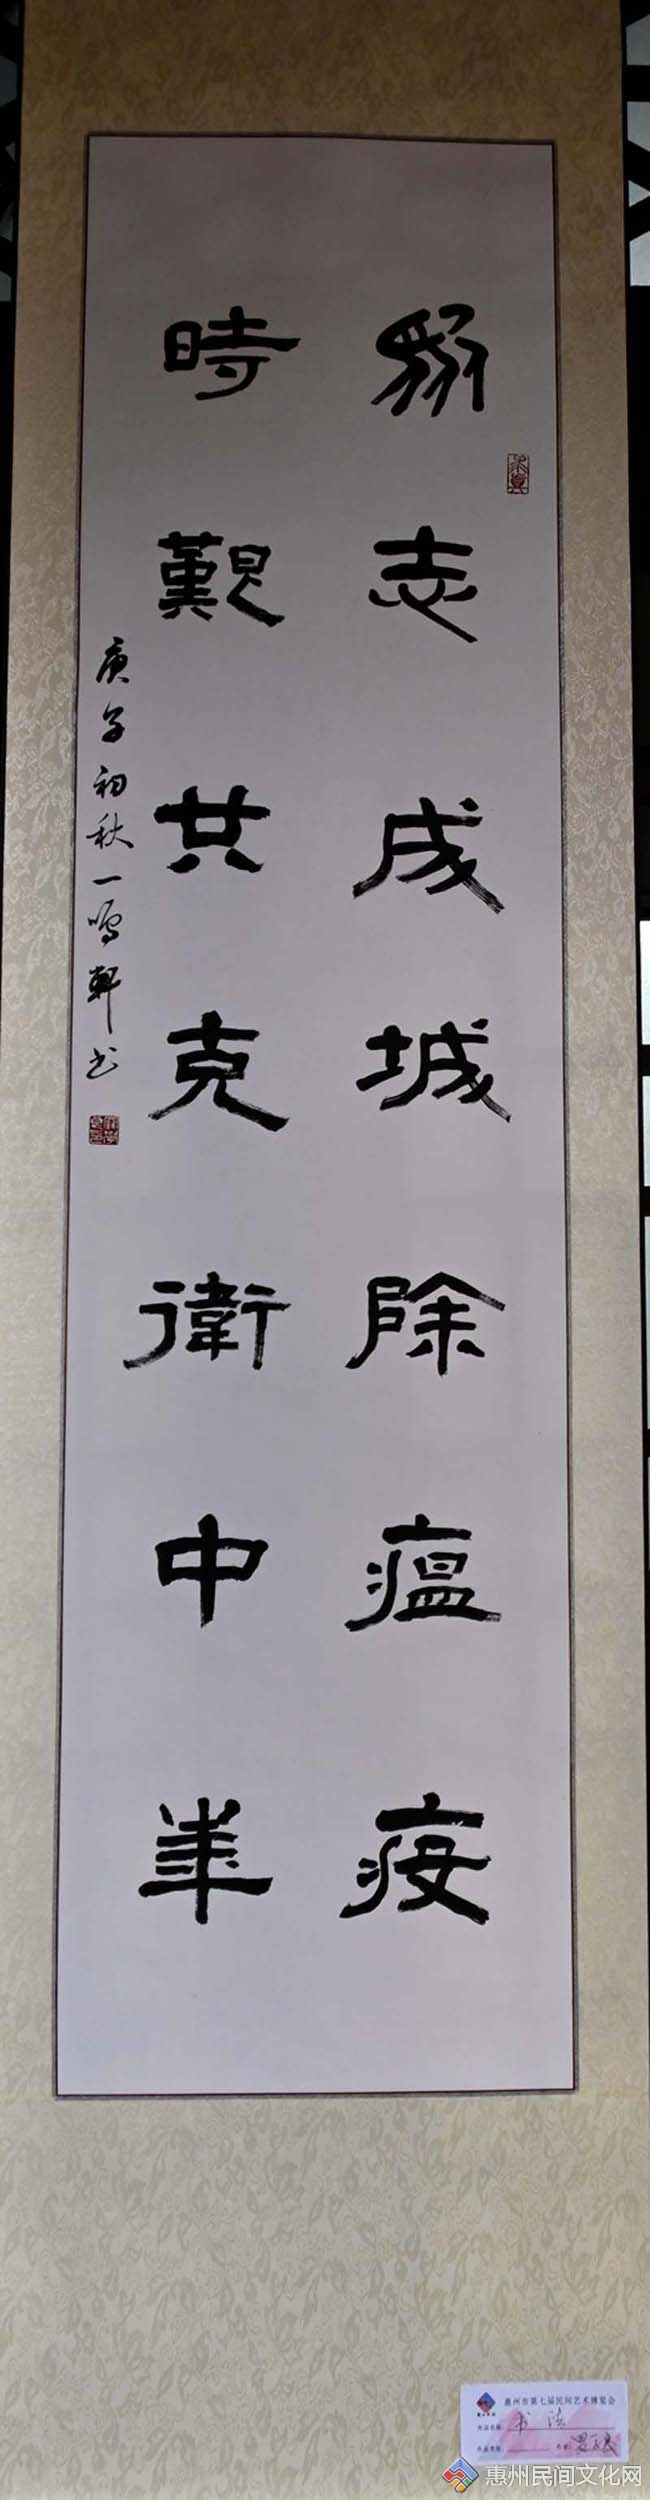 眾志成城除瘟疫
時艱共克衛中華
庚子初秋一鳴軒书
惠州市第七届民间艺术博览会
作品名称: 书法
作品类别: 作者:
惠州民间文化网